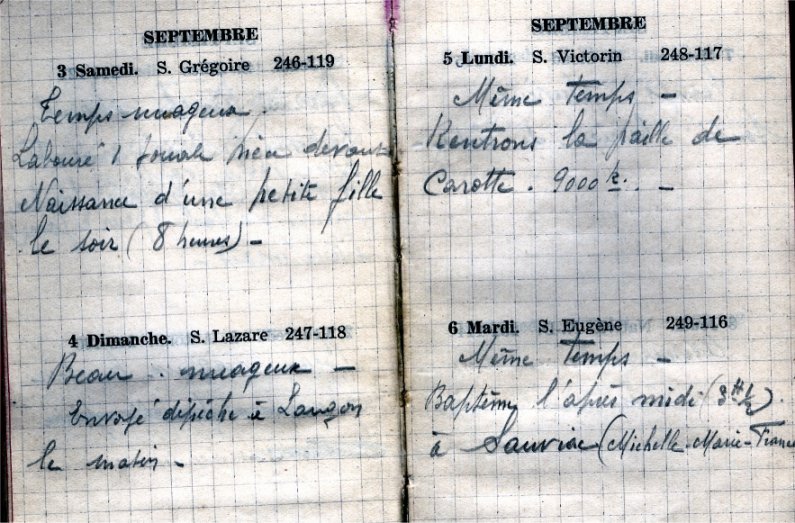 SEPTEMBRE
3 Samedi. S. Grégoire 246-119
Temps nuageux.
Labouré 1 devant
Naissance d'une petite fille
le soir (8 heures) –
4 Dimanche. S. Lazare 247-118
Beau . nuageux –
Envoyé dépêche à Langon
le matin –
SEPTEMBRE
5 Lundi. S. Victorin 248-117
Même temps –
Rentrons la paille de
Carotte . 9000 k. –
6 Mardi. S. Eugène 249-116
Même temps –
Baptême l'après midi (3 H ½).
à Sauviac (Michelle-Marie-France